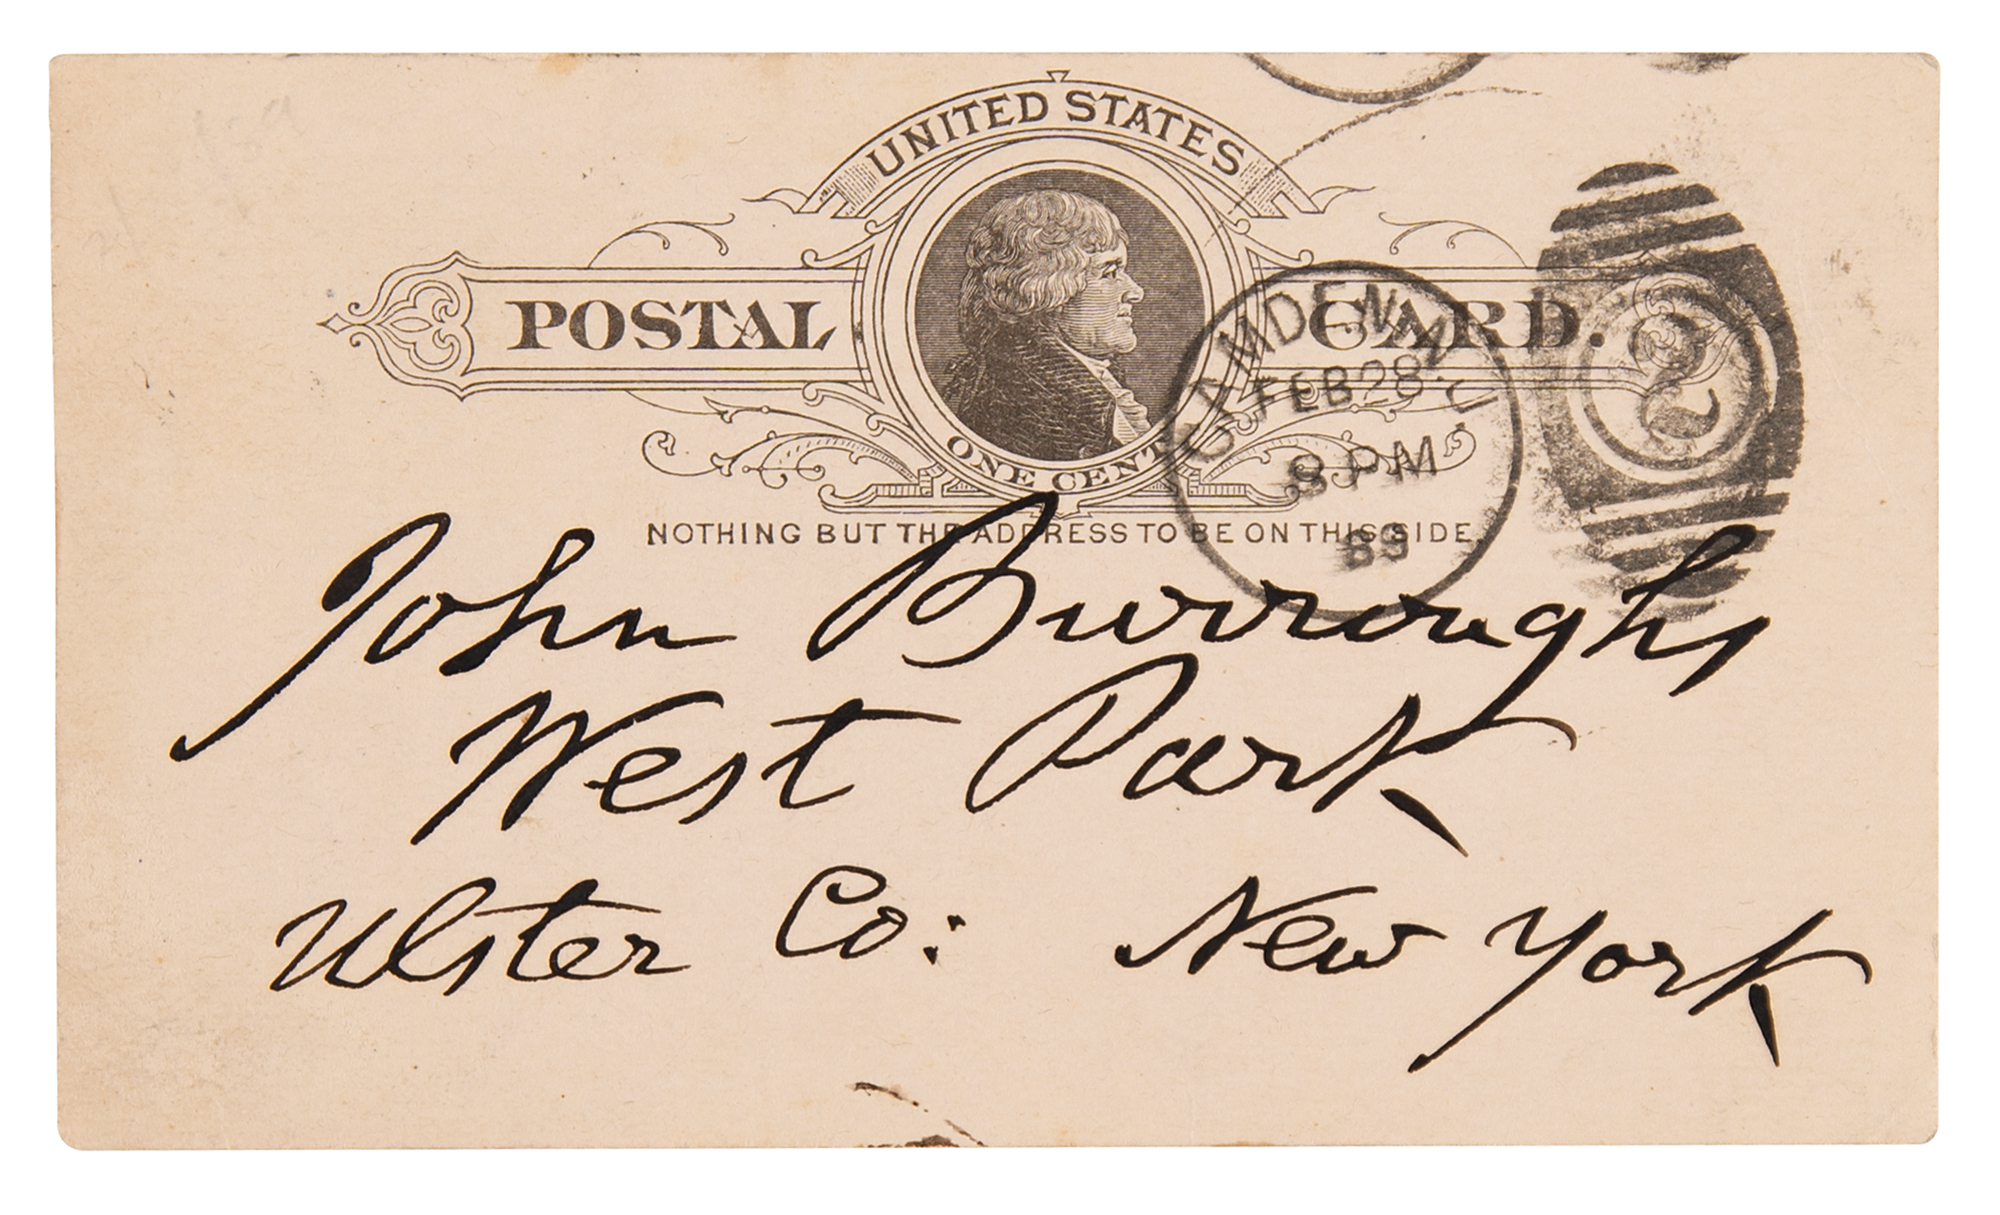 UNITED STATES
POSTAL CARD.
ONE CENT
CAMDEN, N.J.
FEB 28
8 PM
89
2
NOTHING BUT THE ADDRESS TO BE ON THIS SIDE.
John Burroughs
West Park
Ulster Co: New York